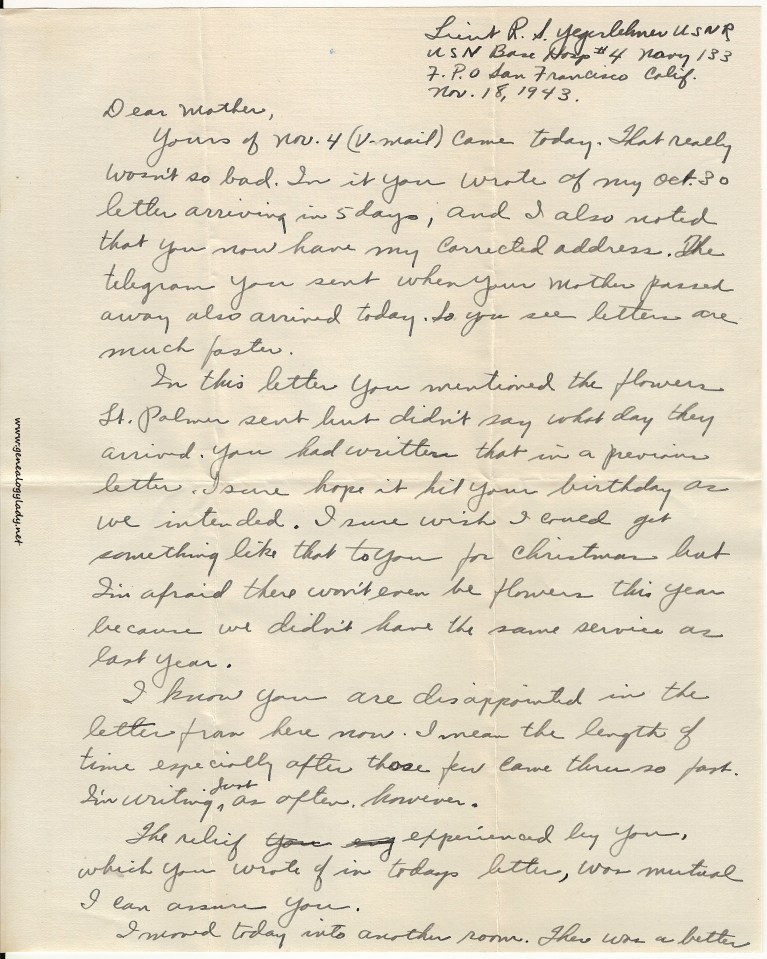 Lieut R. S. Yegerlehner USNR
USN Base Hosp #4 Navy 133
F.P.O San Francisco Calif.
Nov. 18, 1943.
Dear Mother,
Yours of Nov. 4 (V-mail) came today. That really
wasn't so bad. In it you wrote of my Oct. 30
letter arriving in 5 days, and I also noted
that you now have my corrected address. The
telegram you sent when your mother passed
away also arrived today. So you see letters are
much faster.
In this letter you mentioned the flowers
Lt. Palmer sent but didn't say what day they
arrived. You had written that in a previous
letter. I sure hope it hit your birthday as
we intended. I sure wish I could get
something like that to you for Christmas but
I'm afraid there won't even be flowers this year
because we didn't have the same service as
last year.
I know you are disappointed in the
letter from here now. I mean the length of
time especially after those few came thru so fast.
I'm writing, just as often, however.
The relief you exp experienced by you,
which you wrote of in todays letter, was mutual
I can assure you.
I moved today into another room. There was a better
www.genealogylady.net